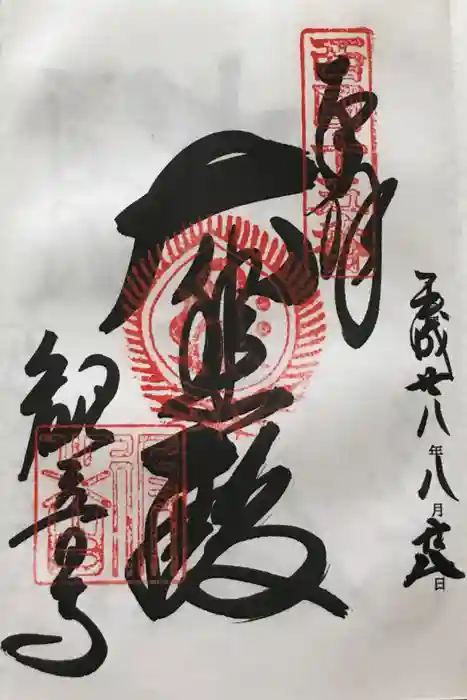 奉拝
西國十五番
大悲殿
観音寺
平成廿八年八月日